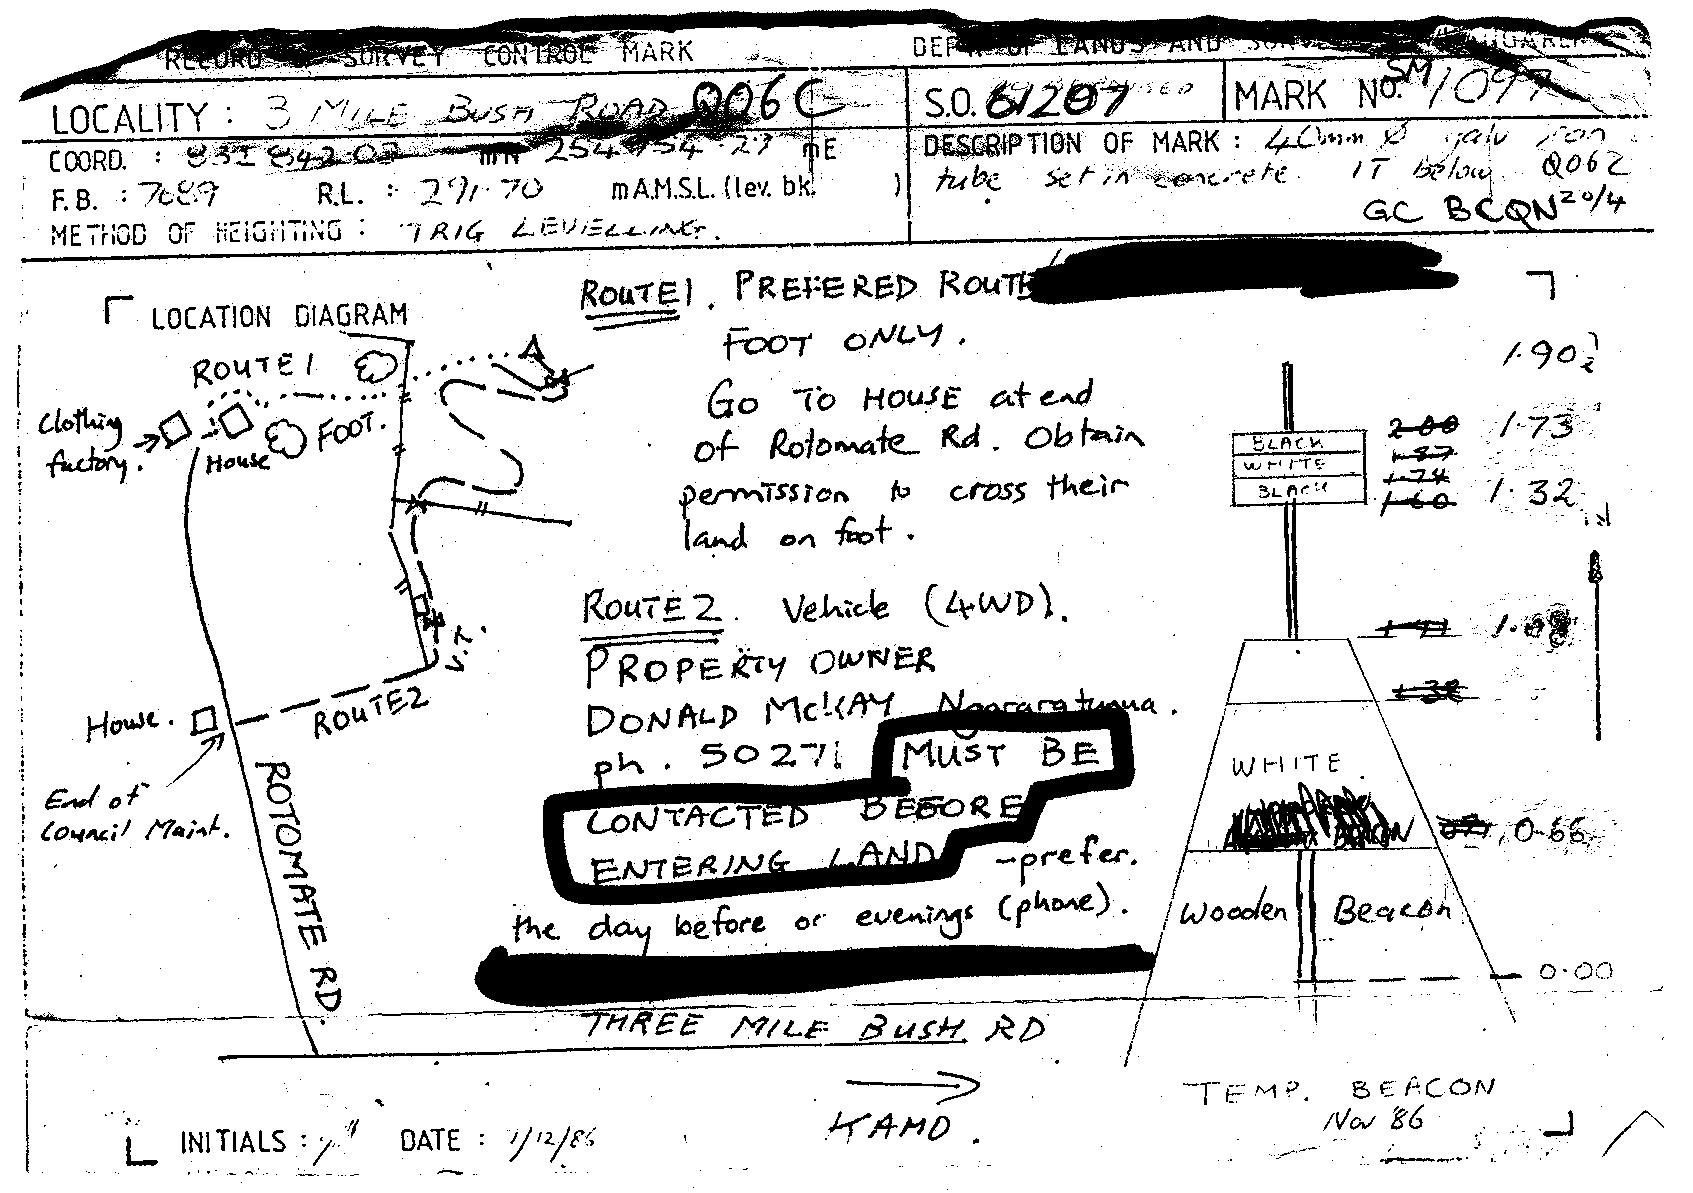 RECORD SURVEY CONTROL MARK
DEPT. OF LANDS AND
LOCALITY : 3 MILE BUSH ROAD Q06C
S.O. 61207
MARK NO. SM 1097
COORD. : mN mE
DESCRIPTION OF MARK : 40mm Ø galv iron
tube set in concrete. IT below. Q062
F.B. : 7689 R.L. : 291.70 mA.M.S.L. (lev. bk. )
GC BCQN 20/4
METHOD OF HEIGHTING : TRIG LEVELLING.
LOCATION DIAGRAM
ROUTE 1
Clothing
factory.
House
FOOT.
V.T.
ROUTE 2
House.
End of
Council Maint.
ROTOMATE RD.
ROUTE 1. PREFERED ROUTE
FOOT ONLY.
GO TO HOUSE at end
of Rotomate Rd. Obtain
permission to cross their
land on foot.
ROUTE 2. Vehicle (4WD).
PROPERTY OWNER
DONALD McKAY
ph. 50271 MUST BE
CONTACTED BEFORE
ENTERING LAND - prefer.
the day before or evenings (phone).
THREE MILE BUSH RD
KAMO.
1.90
BLACK 2.00 1.73
WHITE 1.87
1.74
BLACK 1.60 1.32
1.38
WHITE
BEACON 0.66
Wooden Beacon
0.00
TEMP. BEACON
Nov '86
INITIALS : DATE : 1/12/86